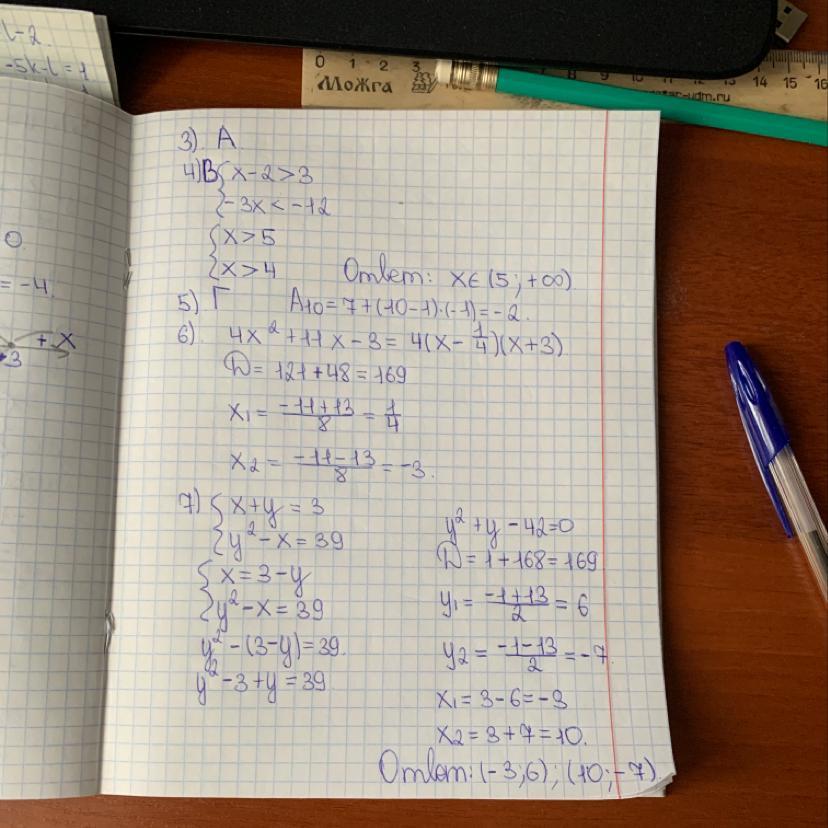 l-2
-5k-l=1
0 1 2 3 8 9 10 11 12 13 14 15 16
Можга
-udm.ru
0
= -4.
+ x
3
3) А
4) В { x-2>3
{ -3x<-12
{ x>5
{ x>4 Ответ: x∈(5; +∞)
5) Г A₁₀=7+(10-1)·(-1)=-2.
6) 4x²+11x-3=4(x-1/4)(x+3)
D=121+48=169
x₁= (-11+13)/8 = 1/4
x₂= (-11-13)/8 =-3.
7) { x+y=3
{ y²-x=39
{ x=3-y
{ y²-x=39
y²-(3-y)=39.
y²-3+y=39.
y²+y-42=0
D=1+168=169
y₁= (-1+13)/2 = 6
y₂= (-1-13)/2 =-7.
x₁=3-6=-3
x₂=3+7=10.
Ответ: (-3;6); (10;-7).